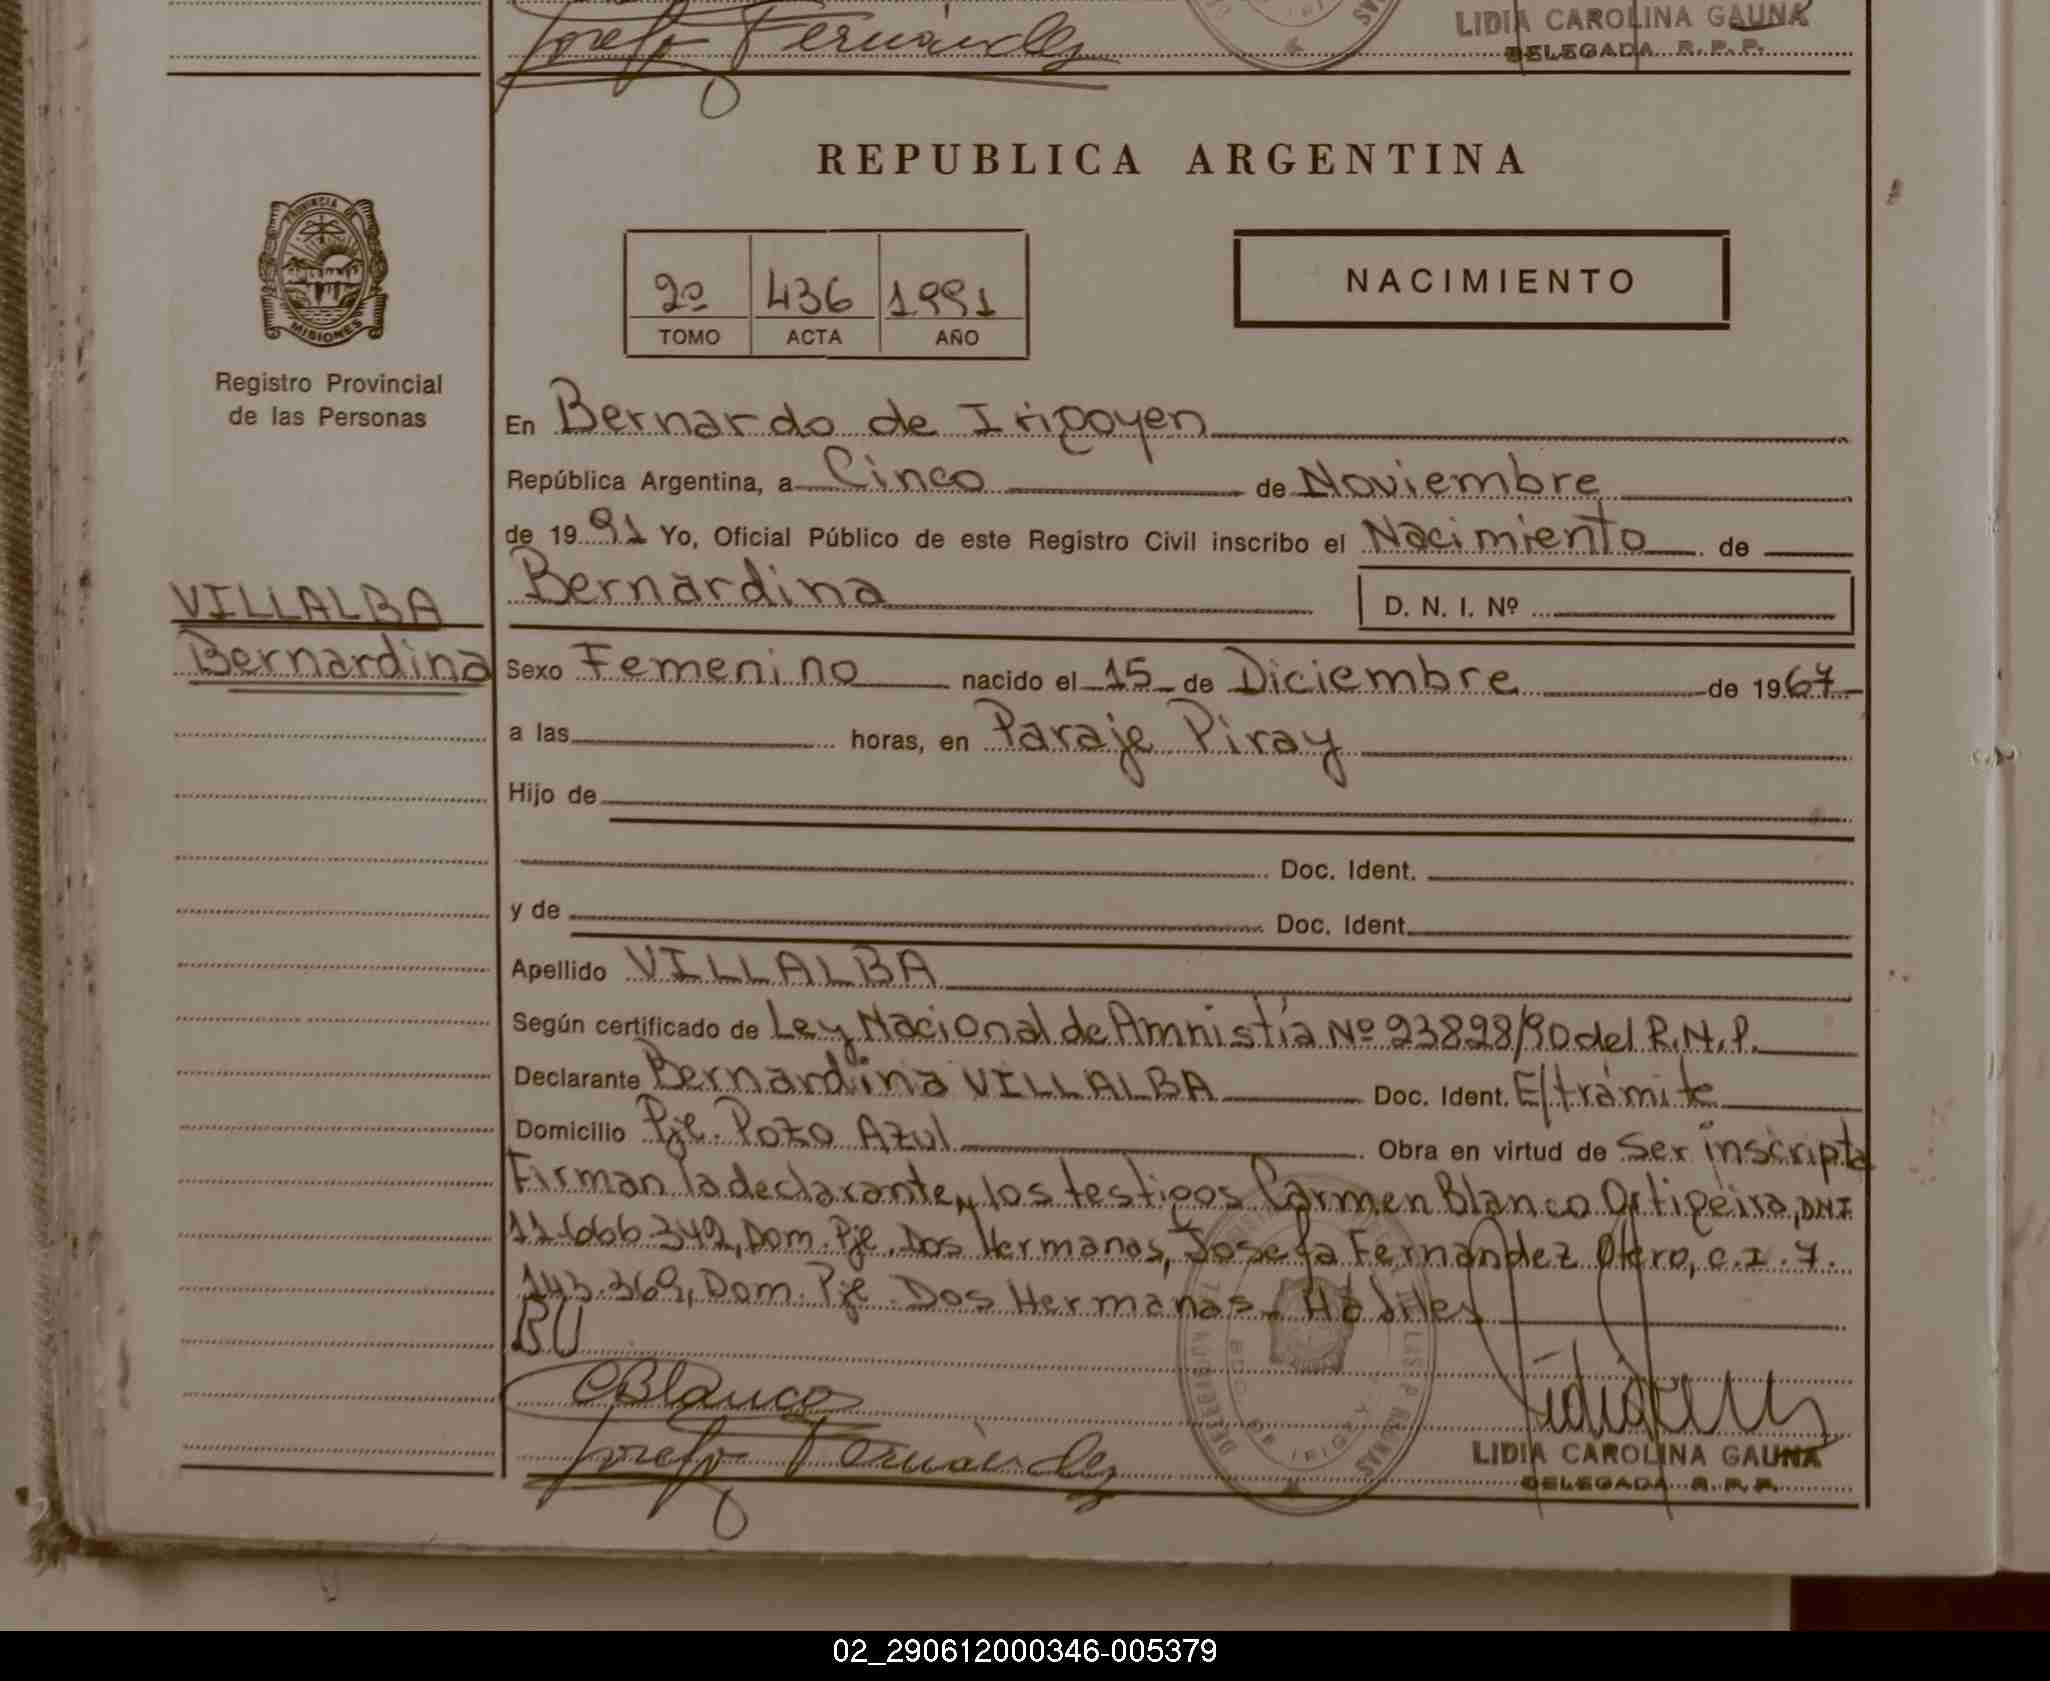 Josefa Fernández
LIDIA CAROLINA GAUNA
DELEGADA R. P. P.
REPUBLICA ARGENTINA
PROVINCIA DE
MISIONES
2º 436 1991
TOMO ACTA AÑO
NACIMIENTO
Registro Provincial
de las Personas
En Bernardo de Irigoyen
República Argentina, a Cinco de Noviembre
de 1991 Yo, Oficial Público de este Registro Civil inscribo el Nacimiento de
VILLALBA
Bernardina
Bernardina D. N. I. Nº
Sexo Femenino nacido el 15 de Diciembre de 1967
a las horas, en Paraje Piray
Hijo de
Doc. Ident.
y de Doc. Ident.
Apellido VILLALBA
Según certificado de Ley Nacional de Amnistía Nº 23828/90 del R.N.P.
Declarante Bernardina VILLALBA Doc. Ident. E/trámite
Domicilio Pje. Pozo Azul. Obra en virtud de ser inscripta
Firman la declarante, los testigos Carmen Blanco Ortigeira, DNI
11.666.342, Dom. Pje. Dos Hermanas, Josefa Fernandez Otero, C.I. 7.
143.369, Dom. Pje. Dos Hermanas - Hábiles
BU
CBlanco
Josefa Fernández
LIDIA CAROLINA GAUNA
DELEGADA R. P. P.
02_290612000346-005379